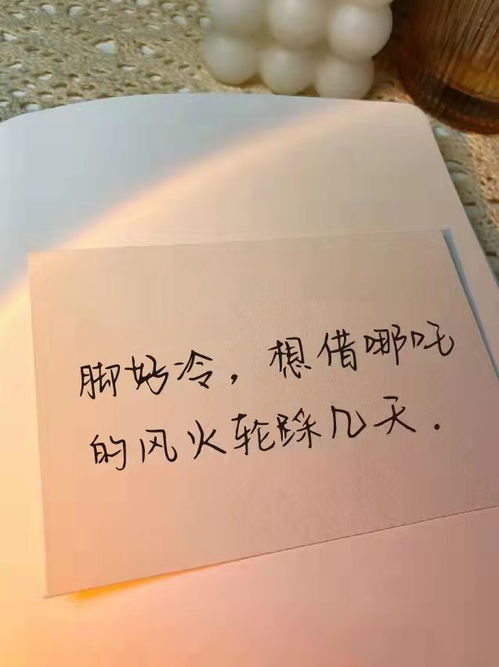 脚好冷，想借哪吒
的风火轮踩几天.